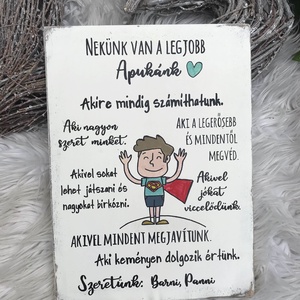 NEKÜNK VAN A LEGJOBB
Apukánk
Akire mindig számíthatunk.
Aki nagyon
szeret minket.
AKI A LEGERŐSEBB
ÉS MINDENTŐL
MEGVÉD.
Akivel sokat
lehet játszani és
nagyokat birkózni.
Akivel
jókat
viccelődünk.
AKIVEL MINDENT MEGJAVÍTUNK.
Aki keményen dolgozik értünk.
Szeretünk: Barni, Panni